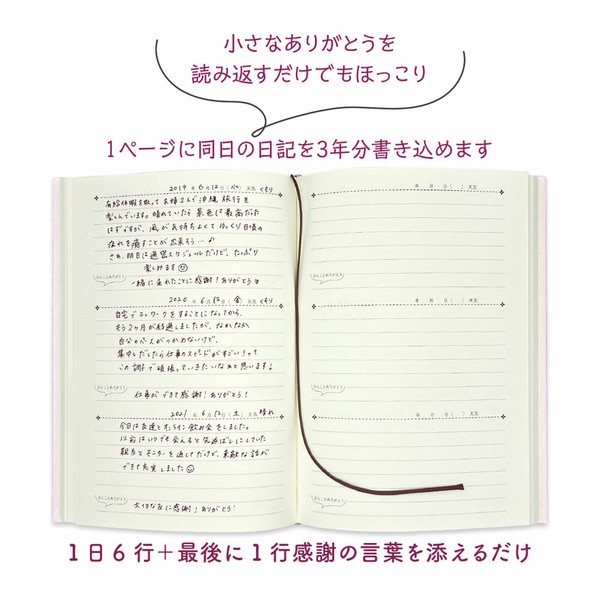 小さなありがとうを
読み返すだけでもほっこり
1ページに同日の日記を3年分書き込めます
2019年6月12日(水)天気 くもり
有給休暇を取って夫婦2人で沖縄旅行を
楽しんでいます。晴れていたら景色は最高だった
はずですが、風が気持ちよくてゆっくり日頃の
疲れを癒すことが出来そう…♪
さぁ、明日は過密スケジュールだけど、たっぷり
楽しみます
ひとことありがとう
一緒に来れたことに感謝!ありがとう
2020年6月12日(金)天気 くもり
自宅でテレワークをすることになってから、
もう2ヶ月が経過しましたが、なかなか
自分のペースがつかめないけど、
集中しだしたら仕事のスピードがすごい!って
この調子で頑張っていきたいなぁと思います!
ひとことありがとう
仕事ができて感謝!ありがとう!
2021年6月12日(土)天気 晴れ
今日は友達とオンライン飲み会をしました。
以前はいつでも会えると先延ばしにしていた
親友とモニターを通してだけど、素敵な話が
できて充実しました
ひとことありがとう
大切な友に感謝!ありがとう!
年 月 日( )天気
ひとことありがとう
年 月 日( )天気
ひとことありがとう
年 月 日( )天気
ひとことありがとう
1日6行+最後に1行感謝の言葉を添えるだけ